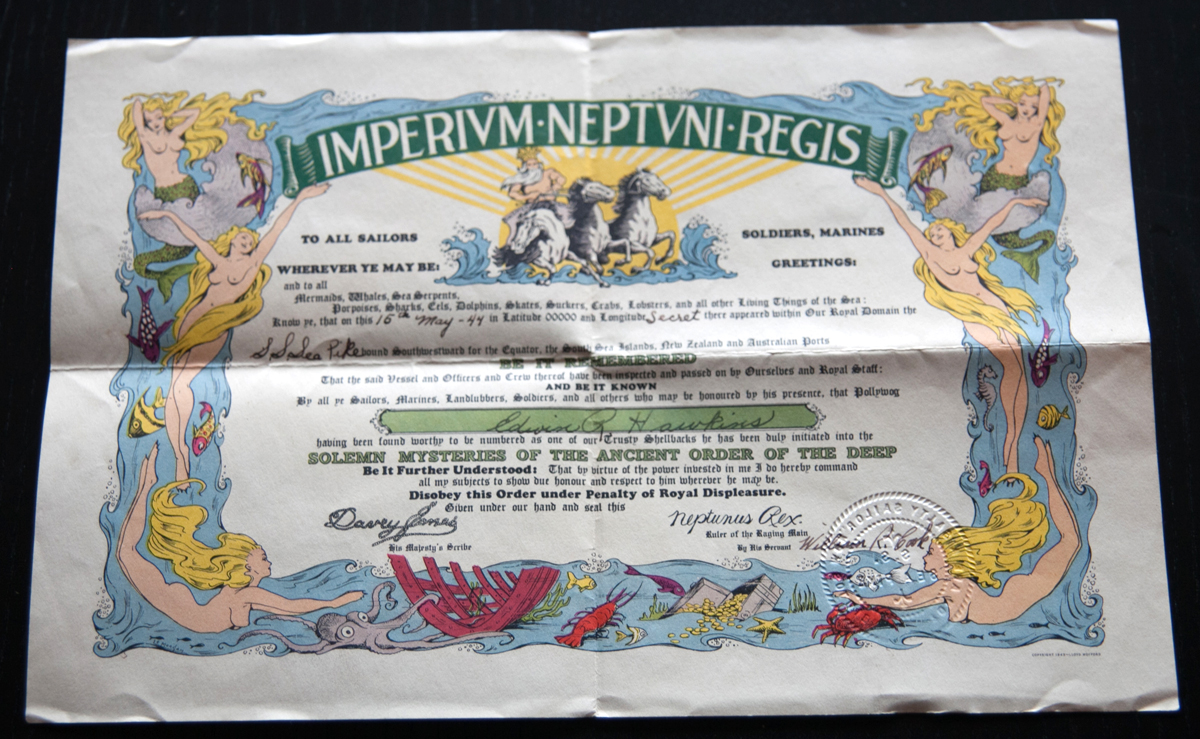 IMPERIVM·NEPTVNI·REGIS
TO ALL SAILORS
SOLDIERS, MARINES
WHEREVER YE MAY BE:
GREETINGS:
and to all
Mermaids, Whales, Sea Serpents,
Porpoises, Sharks, Eels, Dolphins, Skates, Suckers, Crabs, Lobsters, and all other Living Things of the Sea:
Know ye, that on this 15th May-44 in Latitude 00000 and Longitude Secret there appeared within Our Royal Domain the
S S Sea Pike bound Southwestward for the Equator, the South Sea Islands, New Zealand and Australian Ports
BE IT REMEMBERED
That the said Vessel and Officers and Crew thereof have been inspected and passed on by Ourselves and Royal Staff:
AND BE IT KNOWN
By all ye Sailors, Marines, Landlubbers, Soldiers, and all others who may be honoured by his presence, that Pollywog
Edwin R Hawkins
having been found worthy to be numbered as one of our Trusty Shellbacks he has been duly initiated into the
SOLEMN MYSTERIES OF THE ANCIENT ORDER OF THE DEEP
Be It Further Understood: That by virtue of the power invested in me I do hereby command
all my subjects to show due honour and respect to him wherever he may be.
Disobey this Order under Penalty of Royal Displeasure.
Given under our hand and seal this
Davey Jones
Neptunus Rex.
His Majesty's Scribe
Ruler of the Raging Main
By His Servant William R. Cook